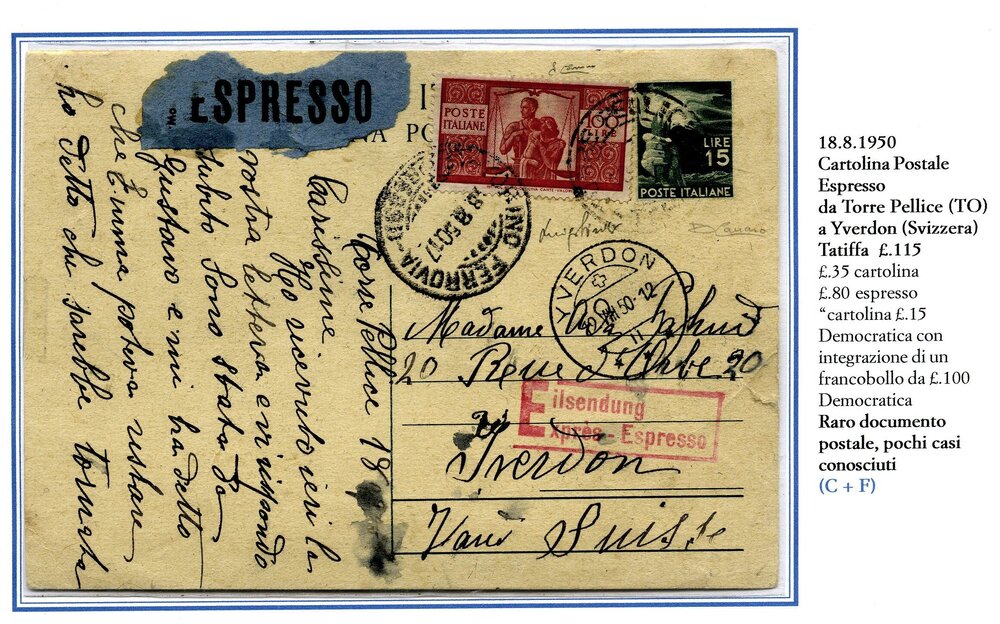 ESPRESSO
POSTE
ITALIANE
100
LIRE
LIRE
15
POSTE ITALIANE
TORINO FERROVIA
18.8.50.17
YVERDON
50-12
Torre Pellice 18
Carissime
Ho ricevuto ieri la
vostra lettera e vi rispondo
subito Sono stata da
Gustavo e mi ha detto
che Emma poteva restare
ho detto che sarebbe tornata
Madame
20 Rue d'Orbe 20
Yverdon
Vaud Suisse
Eilsendung
Exprès - Espresso
18.8.1950
Cartolina Postale
Espresso
da Torre Pellice (TO)
a Yverdon (Svizzera)
Tatiffa £.115
£.35 cartolina
£.80 espresso
“cartolina £.15
Democratica con
integrazione di un
francobollo da £.100
Democratica
Raro documento
postale, pochi casi
conosciuti
(C + F)